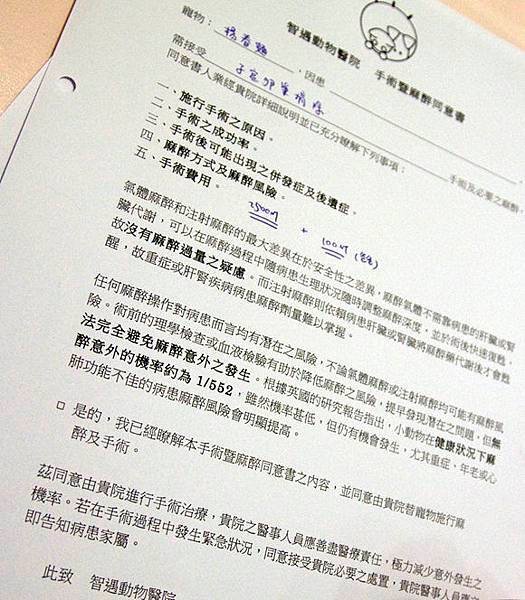 智遇動物醫院　手術暨麻醉同意書
寵物：楊春麵，因患
需接受 子宮卵巢摘除 手術及必要之麻醉，
同意書人業經貴院詳細說明並已充分瞭解下列事項：
一、施行手術之原因。
二、手術之成功率。
三、手術後可能出現之併發症及後遺症。
四、麻醉方式及麻醉風險。
五、手術費用。
2500 + 100
氣體麻醉和注射麻醉的最大差異在於安全性之差異，麻醉氣體不需靠病患的肝臟或腎
臟代謝，可以在麻醉過程中隨病患生理狀況隨時調整麻醉深度，並於術後快速甦醒，
故沒有麻醉過量之疑慮。而注射麻醉則依賴病患肝臟或腎臟將麻醉藥代謝後才會甦
醒，故重症或肝腎疾病病患麻醉劑量難以掌握。
任何麻醉操作對病患而言均有潛在之風險，不論氣體麻醉或注射麻醉均可能有麻醉風
險。術前的理學檢查或血液檢驗有助於降低麻醉之風險，提早發現潛在之問題，但無
法完全避免麻醉意外之發生。根據英國的研究報告指出，小動物在健康狀況下麻
醉意外的機率約為 1/552，雖然機率甚低，但仍有機會發生，尤其重症、年老或心
肺功能不佳的病患麻醉風險會明顯提高。
□ 是的，我已經瞭解本手術暨麻醉同意書之內容，並同意由貴院替寵物施行麻
醉及手術。
茲同意由貴院進行手術治療，貴院之醫事人員應善盡醫療責任，極力減少意外發生之
機率。若在手術過程中發生緊急狀況，同意接受貴院必要之處置，貴院醫事人員應立
即告知病患家屬。
此致　智遇動物醫院